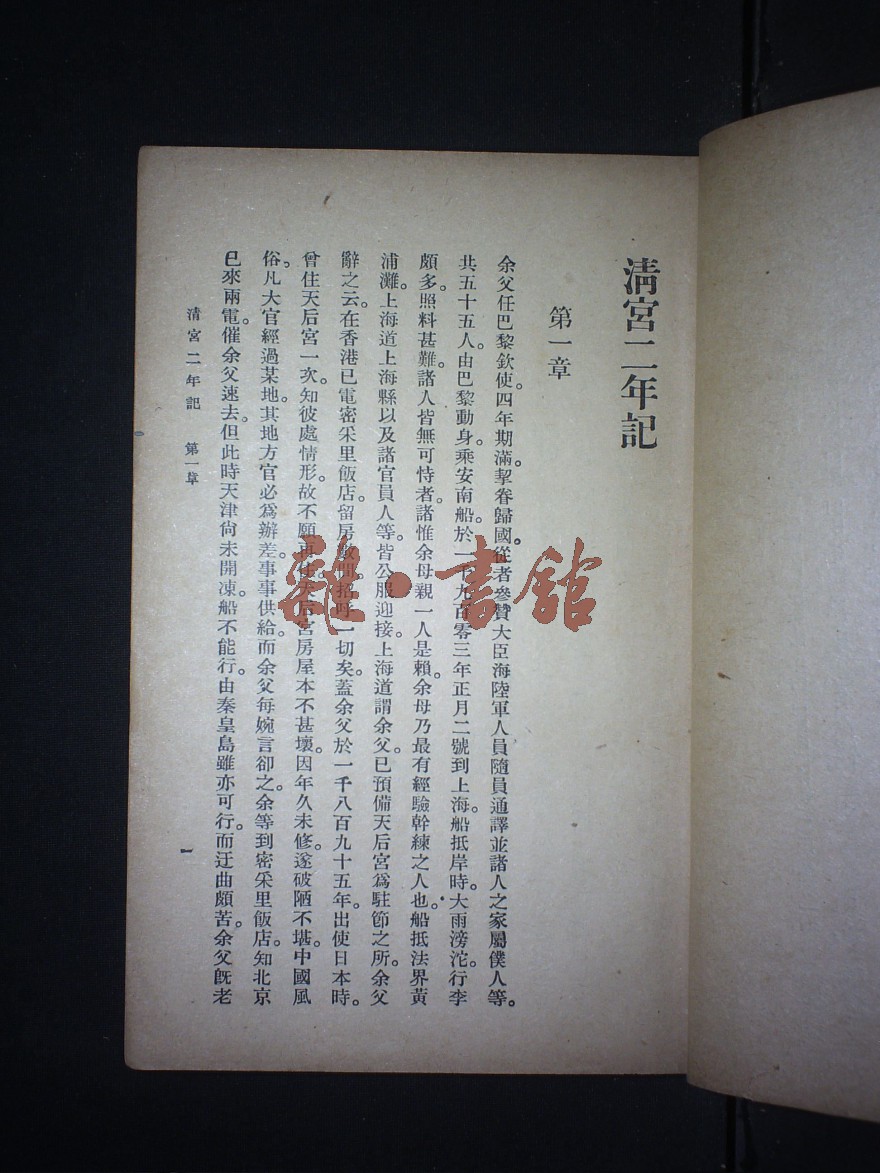 清宮二年記
第一章
余父任巴黎欽使。四年期滿。挈眷歸國。從者參贊大臣海陸軍人員隨員通譯並諸人之家屬僕人等。
共五十五人。由巴黎動身。乘安南船。於一千九百零三年正月二號到上海。船抵岸時。大雨滂沱。行李
頗多。照料甚難。諸人皆無可恃者。諸惟余母親一人是賴。余母乃最有經驗幹練之人也。船抵法界黃
浦灘。上海道上海縣以及諸官員人等。皆公服迎接。上海道謂余父。已預備天后宮爲駐節之所。余父
辭之云。在香港已電密采里飯店。留房數間。招呼一切矣。蓋余父於一千八百九十五年。出使日本時。
曾住天后宮一次。知彼處情形。故不願再住。天后宮房屋本不甚壞。因年久未修。遂破陋不堪。中國風
俗。凡大官經過某地。其地方官必爲辦差。事事供給。而余父每婉言卻之。余等到密采里飯店。知北京
已來兩電。催余父速去。但此時天津尙未開凍。船不能行。由秦皇島雖亦可行。而迂曲頗苦。余父旣老
清宮二年記 第一章
一
雜·書館